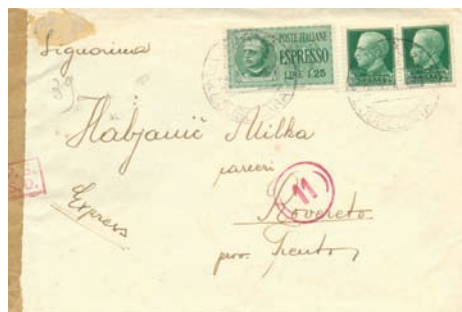 Signorina
POSTE ITALIANE
ESPRESSO
LIRE 1.25
Habjanič Milka
carceri
11
S.D.
Express
Rovereto
prov. Trento